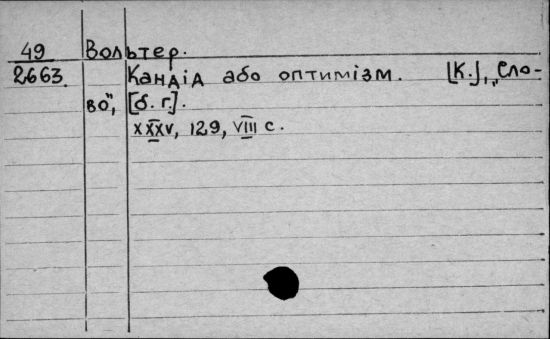 49 Вольтер.
2663. Кандід або оптимізм. [К.], „Сло-
во", [б. г.].
XXXV, 129, VIII с.